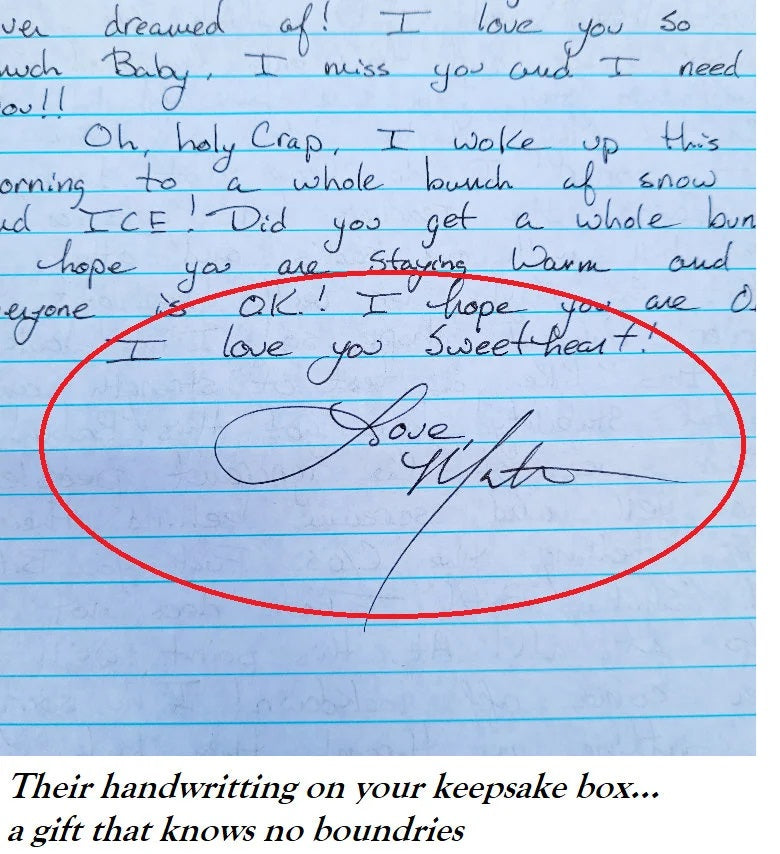 ver dreamed of! I love you so
much Baby, I miss you and I need
ou!!
Oh, holy Crap, I woke up this
orning to a whole bunch of snow
nd ICE! Did you get a whole bun
hope you are staying warm and
eryone is OK! I hope you are O
I love you Sweetheart!
Love,
Their handwritting on your keepsake box...
a gift that knows no boundries